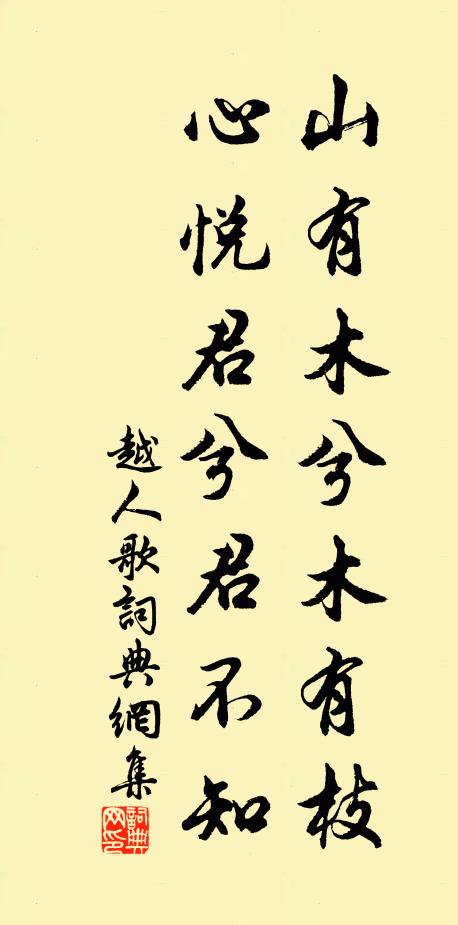 山有木兮木有枝
心悦君兮君不知
越人歌詞典網集
詞典网印